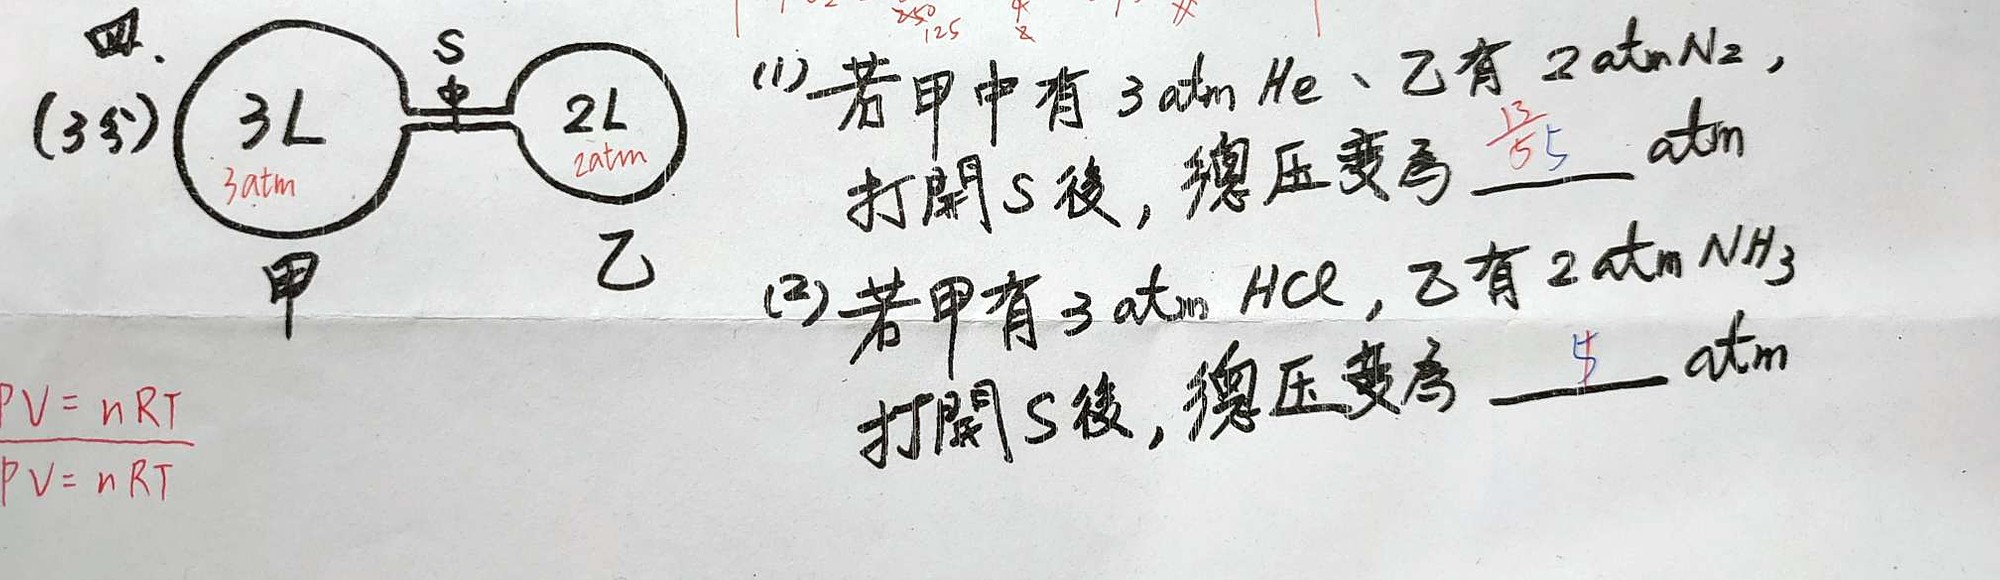 四.
(3分)
3L
3atm
甲
S
2L
2atm
乙
250
125
(1) 若甲中有 3 atm He、乙有 2 atm N2,
打開S後, 總压變為 13/5 5 atm
(2) 若甲有 3 atm HCl, 乙有 2 atm NH3
打開S後, 總压變為 5 atm
PV = nRT
PV = nRT